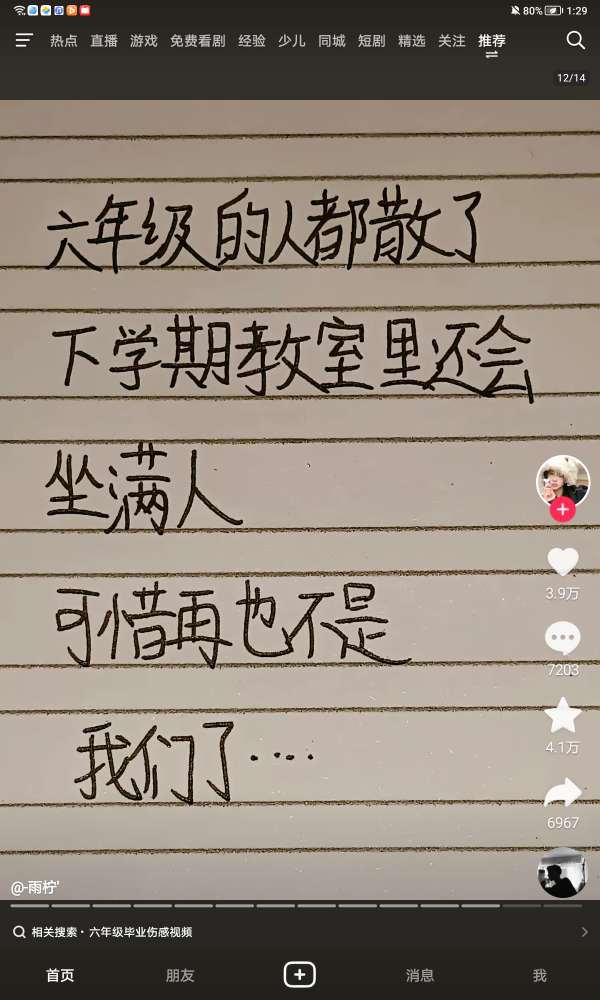 80% 1:29
热点 直播 游戏 免费看剧 经验 少儿 同城 短剧 精选 关注 推荐
12/14
六年级的人都散了
下学期教室里还会
坐满人
可惜再也不是
我们了····
3.9万
7203
4.1万
6967
@-雨柠'
相关搜索 · 六年级毕业伤感视频
首页 朋友 消息 我